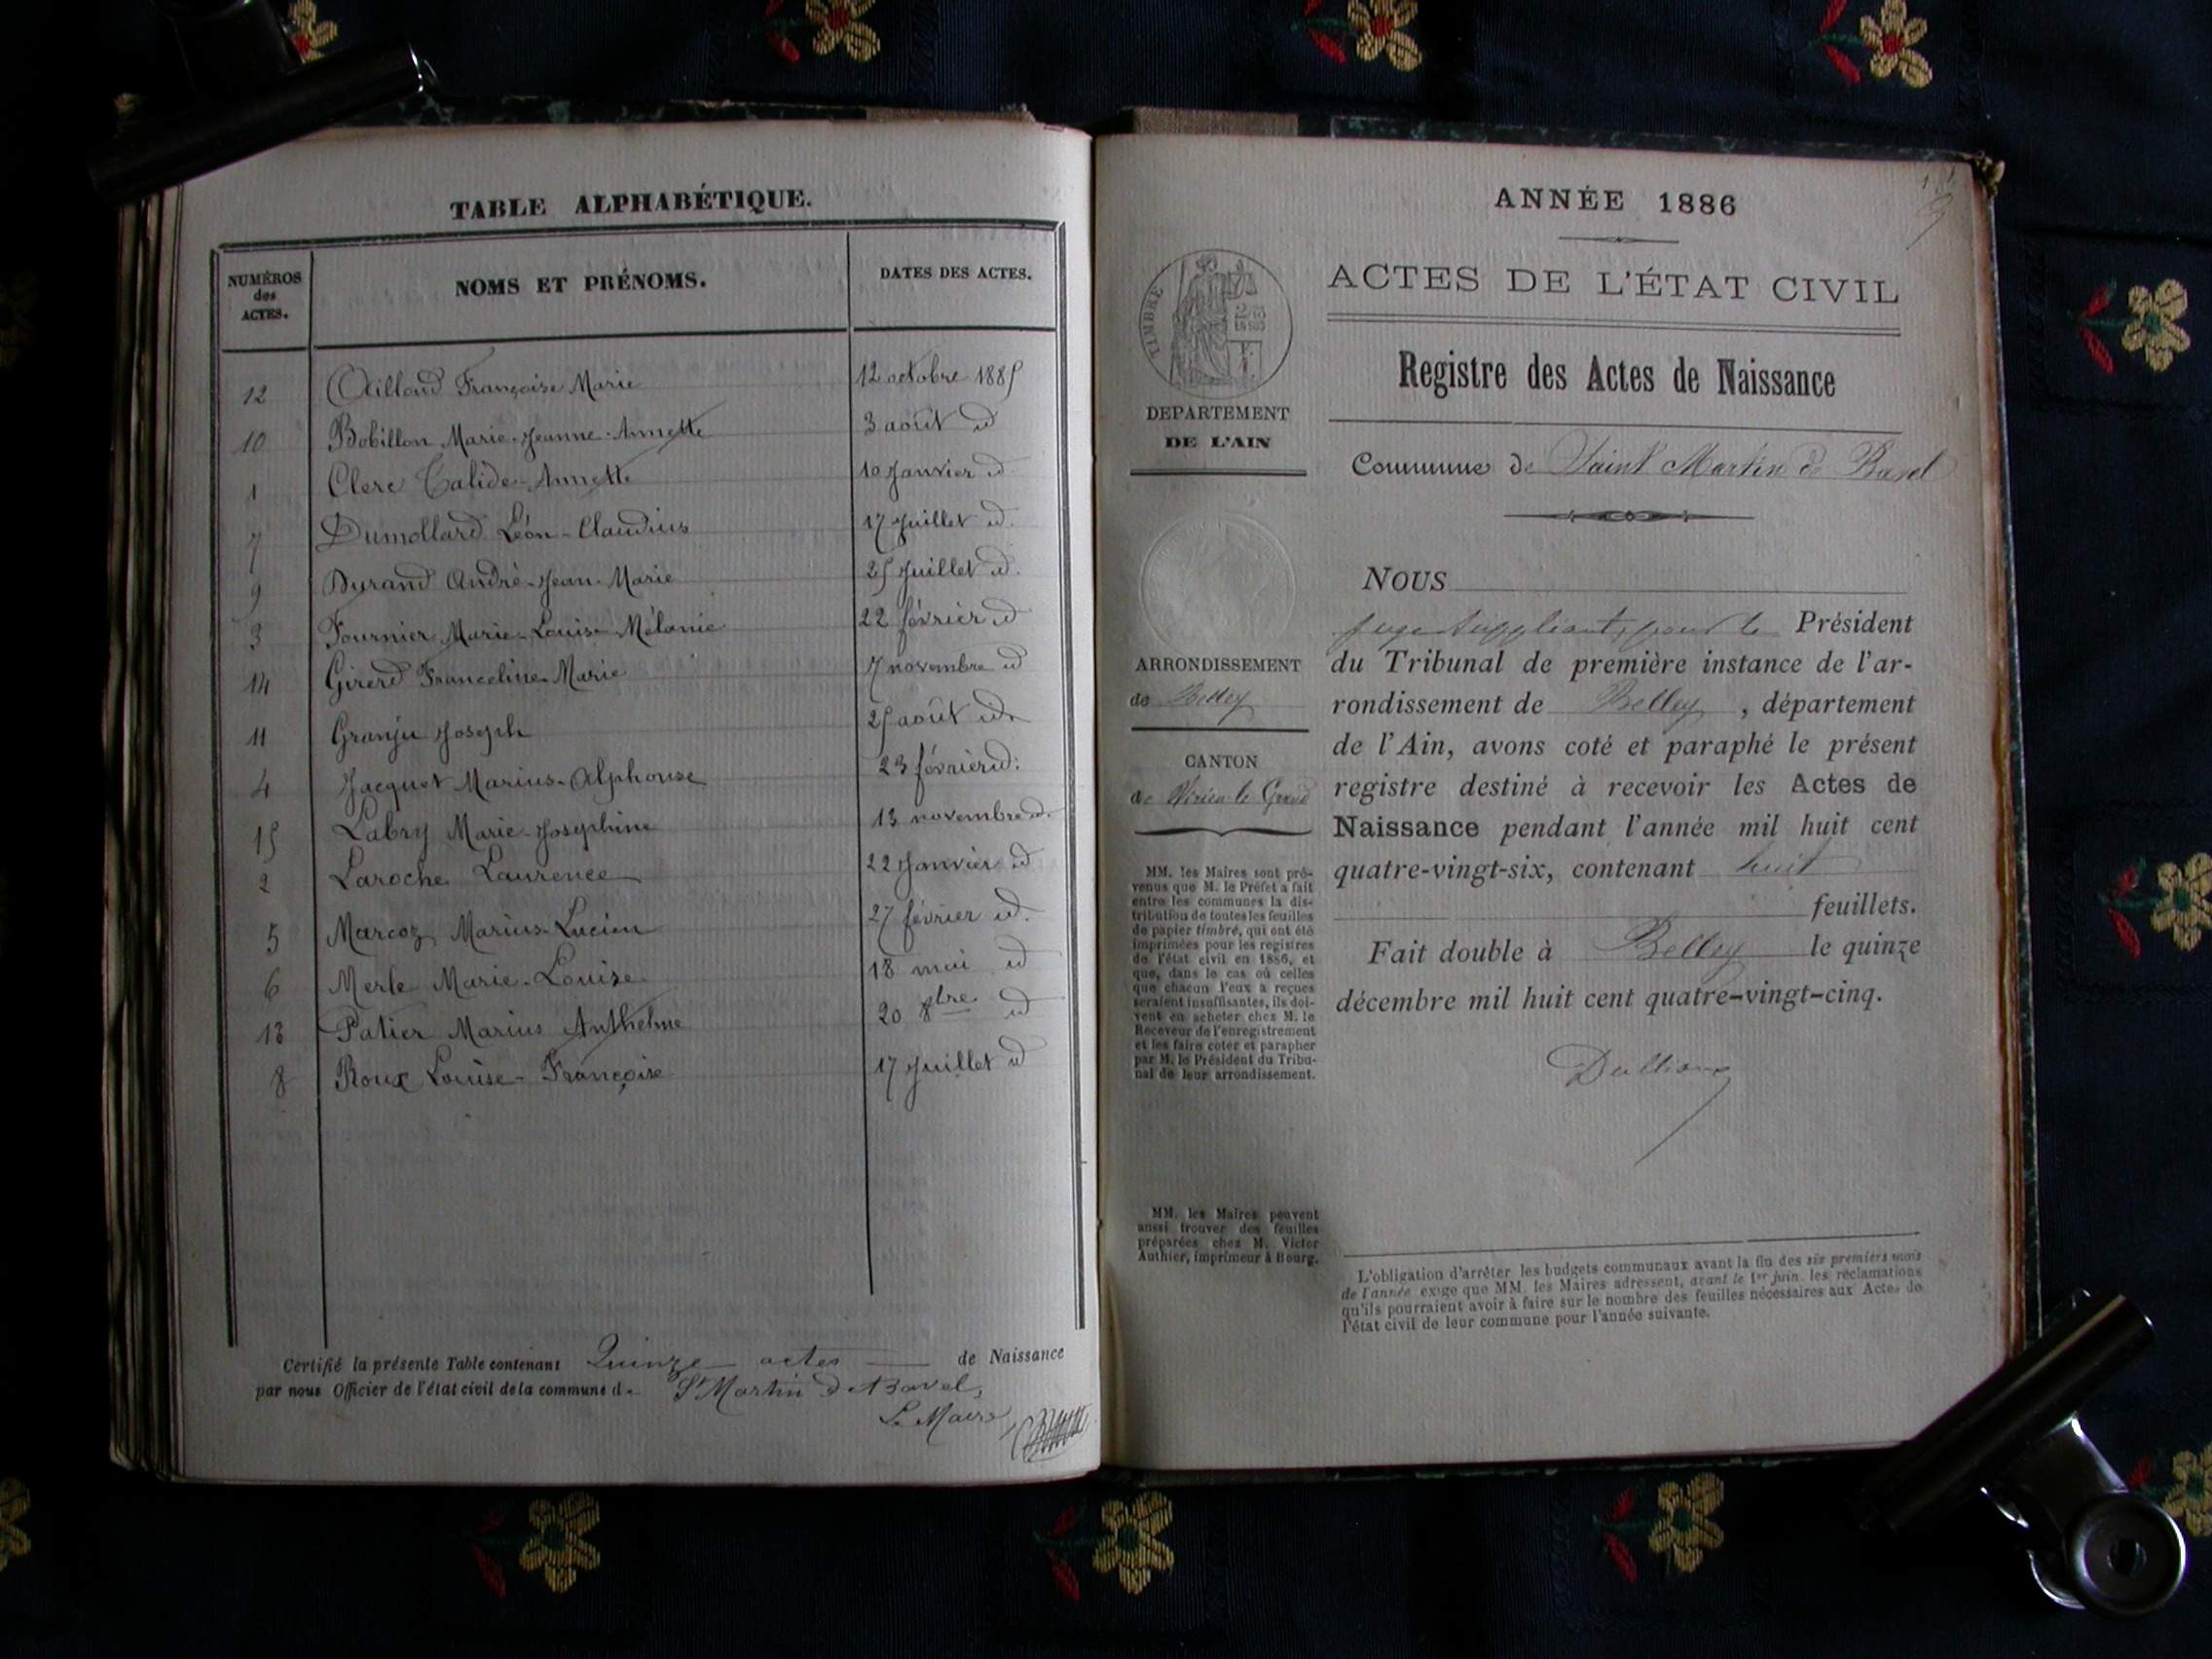 TABLE ALPHABÉTIQUE.
NUMÉROS des ACTES.
NOMS ET PRÉNOMS.
DATES DES ACTES.
12 Aillaud Françoise Marie 12 octobre 1885
10 Bobillon Marie-Jeanne-Annette 3 août id
1 Clerc Calide-Annette 10 Janvier id
7 Dumollard Léon-Claudius 17 Juillet id.
9 Durand André-Jean-Marie 25 Juillet id.
3 Fournier Marie-Louise-Mélanie 22 février id
14 Girerd Franceline-Marie 7 novembre id
11 Granju Joseph 25 août id.
4 Jacquet Marius-Alphonse 23 février id.
15 Labry Marie-Joséphine 13 novembre id.
2 Laroche Laurence 22 Janvier id
5 Marcoz Marius-Lucien 27 février id.
6 Merle Marie-Louise 18 mai id
13 Patier Marius Anthelme 20 8bre id
8 Roux Louise-Françoise 17 Juillet id
Certifié la présente Table contenant Quinze actes de Naissance
par nous Officier de l'état civil de la commune de St Martin de Bavel,
Le Maire,
ANNÉE 1886
ACTES DE L'ÉTAT CIVIL
Registre des Actes de Naissance
Commune de Saint Martin de Bavel
TIMBRE
EN SUS
DEPARTEMENT
DE L'AIN
ARRONDISSEMENT
de Belley
CANTON
de Virieu le Grand
MM. les Maires sont pré-
venus que M. le Préfet a fait
entre les communes la dis-
tribution de toutes les feuilles
de papier timbré, qui ont été
imprimées pour les registres
de l'état civil en 1886, et
que, dans le cas où celles
que chacun d'eux a reçues
seraient insuffisantes, ils doi-
vent en acheter chez M. le
Receveur de l'enregistrement
et les faire coter et parapher
par M. le Président du Tribu-
nal de leur arrondissement.
MM. les Maires peuvent
aussi trouver des feuilles
préparées chez M. Victor
Authier, imprimeur à Bourg.
NOUS
juge suppléant, pour le Président
du Tribunal de première instance de l'ar-
rondissement de Belley, département
de l'Ain, avons coté et paraphé le présent
registre destiné à recevoir les Actes de
Naissance pendant l'année mil huit cent
quatre-vingt-six, contenant huit
feuillets.
Fait double à Belley le quinze
décembre mil huit cent quatre-vingt-cinq.
L'obligation d'arrêter les budgets communaux avant la fin des six premiers mois
de l'année exige que MM. les Maires adressent, avant le 1er juin, les réclamations
qu'ils pourraient avoir à faire sur le nombre des feuilles nécessaires aux Actes de
l'état civil de leur commune pour l'année suivante.